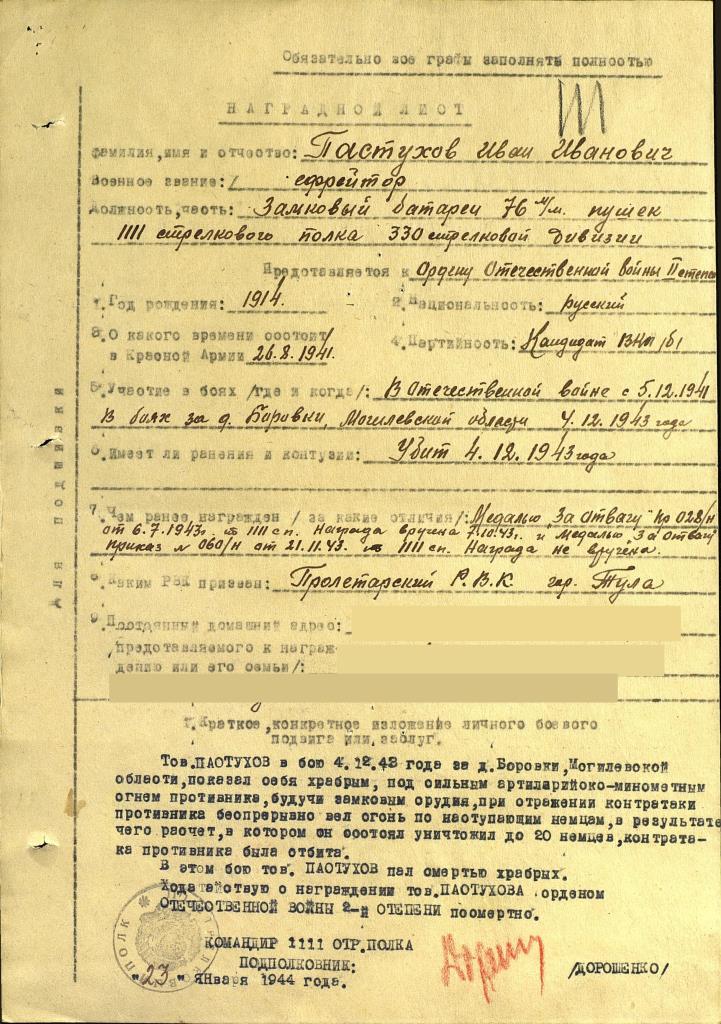 Обязательно все графы заполнять полностью
НАГРАДНОЙ ЛИСТ
фамилия,имя и отчество: Пастухов Иван Иванович
Военное звание:/ ефрейтор
Должность,часть: Замковый батареи 76 м/м. пушек
1111 стрелкового полка 330 стрелковой дивизии
Представляется к Ордену Отечественной войны II степени
1. Год рождения: 1914.
2. Национальность: русский
3. С какого времени состоит
в Красной Армии 26.8.1941.
4. Партийность: Кандидат ВКП/б/
5. Участие в боях /где и когда/: В Отечественной войне с 5.12.1941
В боях за д. Боровки, Могилевской области 4.12.1943 года
6. Имеет ли ранения и контузии: Убит 4.12.1943 года
7. Чем ранее награжден / за какие отличия/: Медалью "За отвагу" пр 028/н
от 6.7.1943г. 1111 сп. Награда вручена 7.10.43г. и Медалью "За отвагу"
приказ № 060/н от 21.11.43. 1111 сп. Награда не вручена.
8. Каким РВК призван: Пролетарский Р.В.К гор. Тула
9. Постоянный домашний адрес:
/представляемого к награж-
дению или его семьи/:
Для подшивки
1. Краткое,конкретное изложение личного боевого
подвига или заслуг.
Тов.ПАСТУХОВ в бою 4.12.43 года за д.Боровки,Могилевской
области,показал себя храбрым, под сильным артиларийско-минометным
огнем противника,будучи замковым орудия,при отражении контратаки
противника беспрерывно вел огонь по наступающим немцам,в результате
чего расчет,в котором он состоял уничтожил до 20 немцев,контрата-
ка противника была отбита.
В этом бою тов. ПАСТУХОВ пал смертью храбрых.
Ходатайствую о награждении тов.ПАСТУХОВА орденом
ОТЕЧЕСТВЕННОЙ ВОЙНЫ 2-й СТЕПЕНИ посмертно.
КОМАНДИР 1111 СТР.ПОЛКА
ПОДПОЛКОВНИК:
/ДОРОШЕНКО/
"23" января 1944 года.